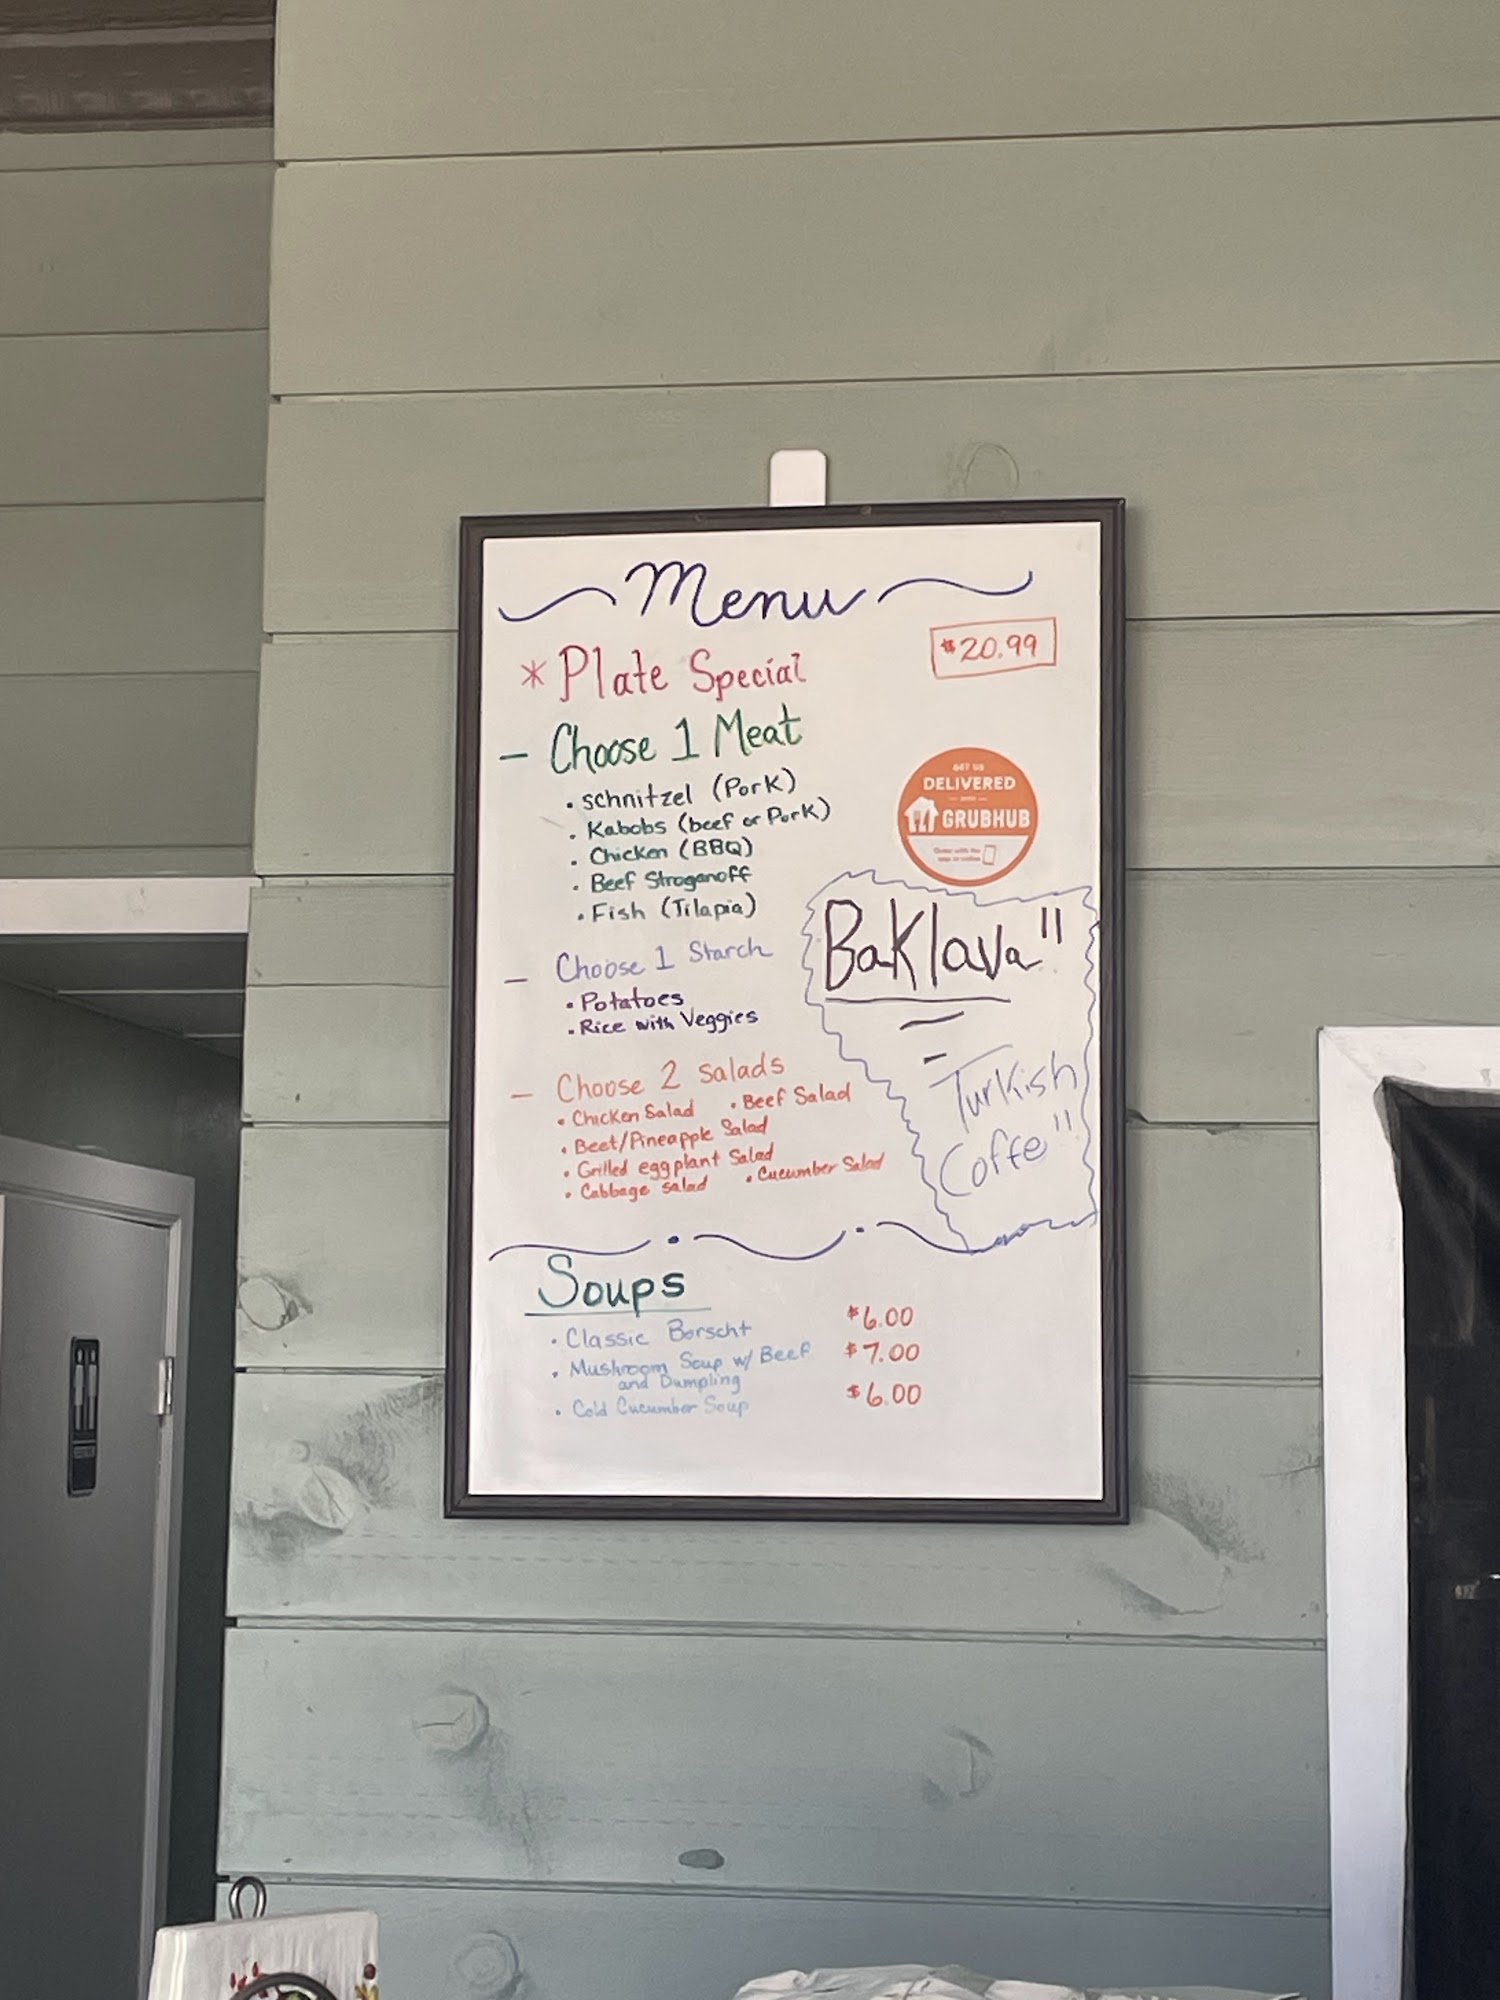 Menu
* Plate Special
$20.99
- Choose 1 Meat
• schnitzel (Pork)
• Kabobs (beef or Pork)
• Chicken (BBQ)
• Beef Stroganoff
• Fish (Tilapia)
GET US
DELIVERED
WITH
GRUBHUB
Order with the
app or online
Baklava"
- Choose 1 Starch
• Potatoes
• Rice with Veggies
Turkish
Coffe"
- Choose 2 salads
• Chicken Salad • Beef Salad
• Beet/Pineapple Salad
• Grilled eggplant Salad
• Cabbage salad • Cucumber Salad
Soups
• Classic Borscht $6.00
• Mushroom Soup w/ Beef $7.00
and Dumpling
• Cold Cucumber Soup $6.00